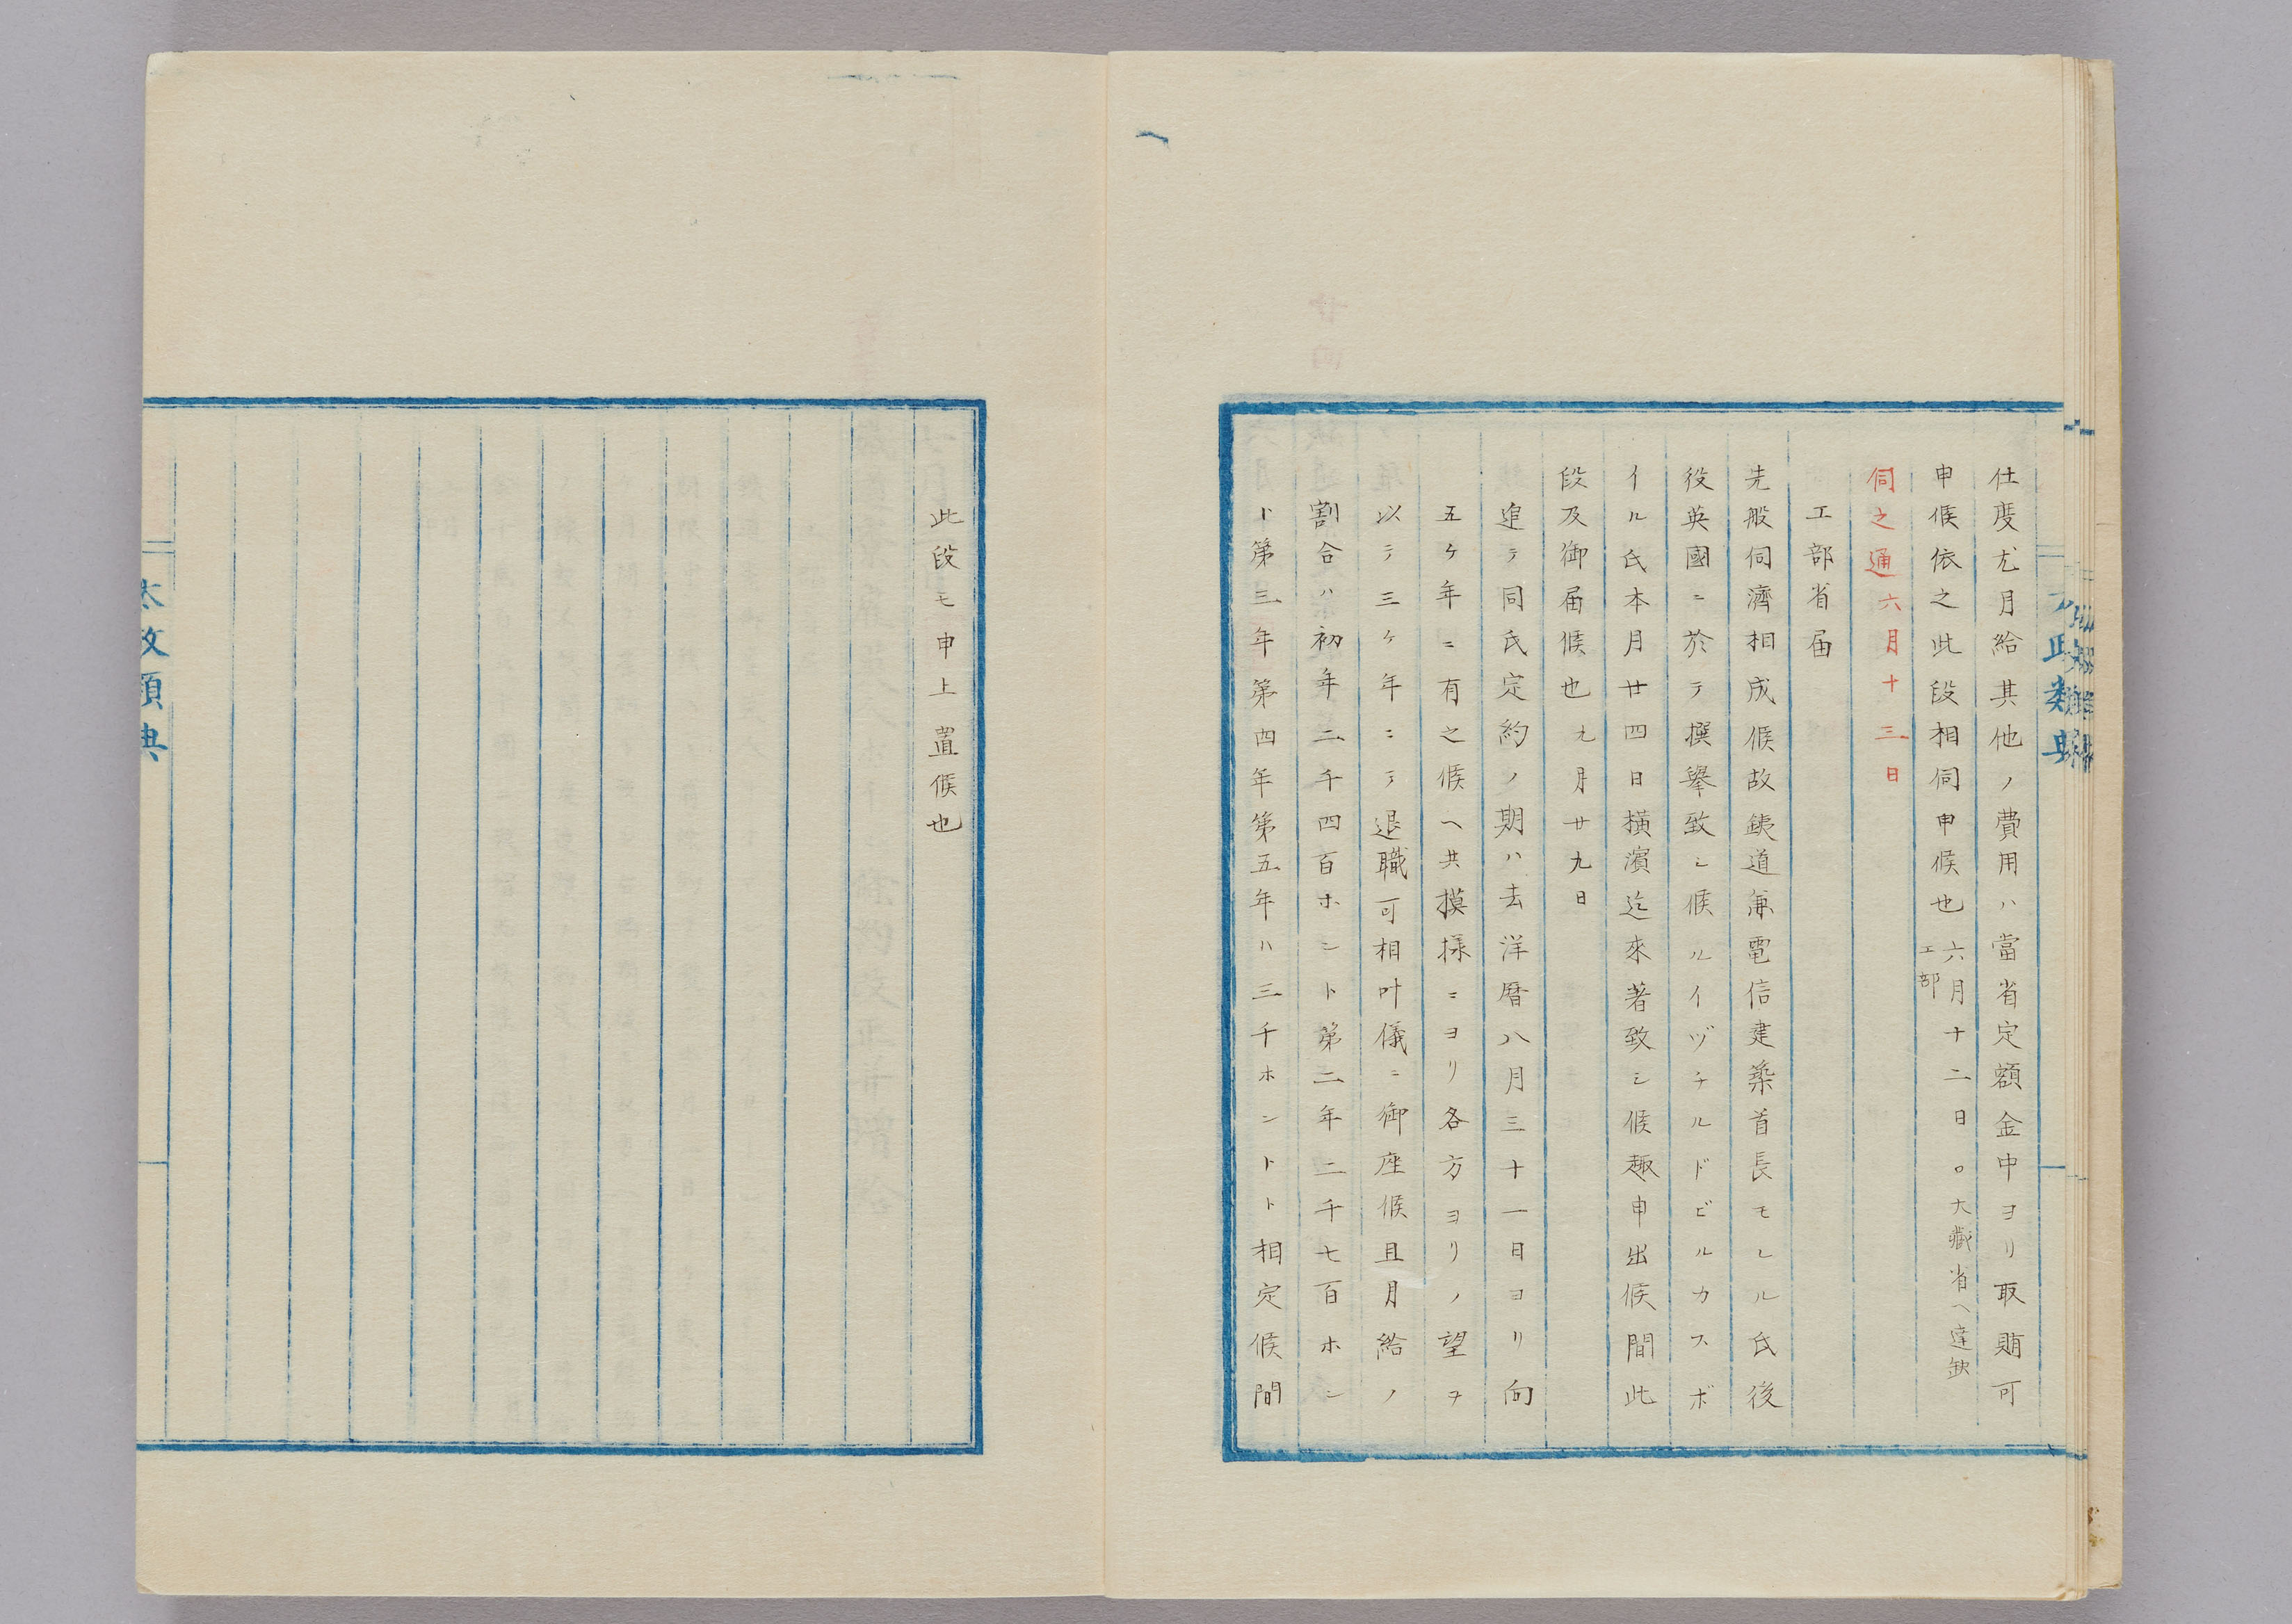 仕度尤月給其他ノ費用ハ當省定額金中ヨリ取賄可
申候依之此段相伺申候也 六月十二日 工部 ○大藏省ヘ達缺
伺之通 六月十三日
工部省届
先般伺濟相成候故鉄道兼電信建築首長モレル氏後
役英國ニ於テ撰擧致シ候ルイヅチルドビルカスボ
イル氏本月廿四日橫濱迄來著致シ候趣申出候間此
段及御届候也 九月廿九日
追テ同氏定約ノ期ハ去洋暦八月三十一日ヨリ向
五ケ年ニ有之候ヘ共摸樣ニヨリ各方ヨリノ望ヲ
以テ三ケ年ニテ退職可相叶儀ニ御座候且月給ノ
割合ハ初年二千四百ホント第二年二千七百ホン
ト第三年第四年第五年ハ三千ホントト相定候間
此段モ申上置候也
太政類典
太政類典